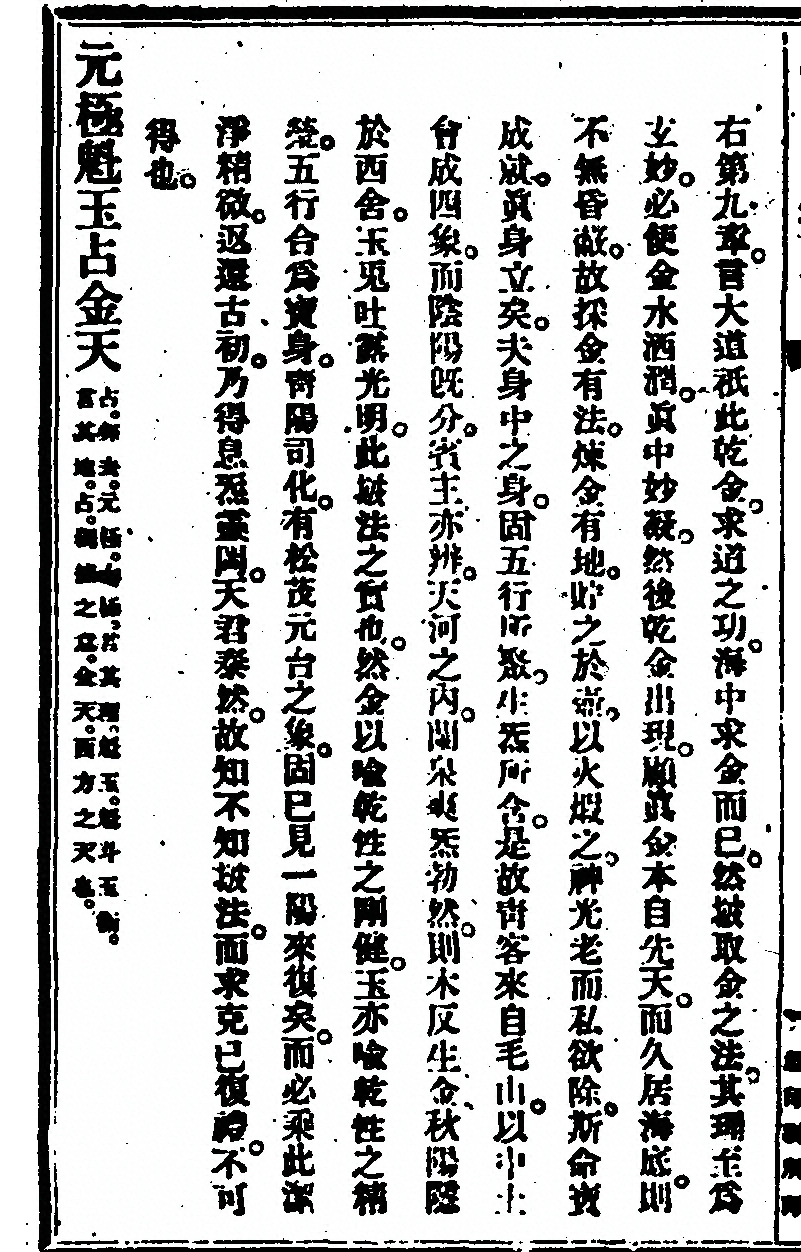 右第九章。言大道祇此乾金。求道之功。海中求金而已。然被取金之法。其理至爲
玄妙。必使金水洒潤。眞中妙凝。然後乾金出現。顧眞金本自先天。而久居海底。則
不無昏蔽。故採金有法。煉金有地。貯之於壺。以火煅之。神光老而私欲除。斯命寶
成就。眞身立矣。夫身中之身。固五行所聚。生炁所含。是故青客來自毛山。以中土
會成四象。而陰陽旣分。賓主亦辨。天河之內。闌泉爽炁勃然。則木反生金。秋陽隱
於西舍。玉兎吐蘂光明。此被法之實也。然金以喻乾性之剛健。玉亦喻乾性之精
瑩。五行合爲寶身。靑陽司化。有松茂元台之象。固已見一陽來復矣。而必乘此潔
淨精微。返還古初。乃得息炁靈関。天君泰然。故知不知被法。而求克己復禮。不可
得也。
元極魁玉占金天
占。師夫。元極。極。其理。魁玉。魁斗玉衡。
言其地。占。之意。金天。西方之天也。